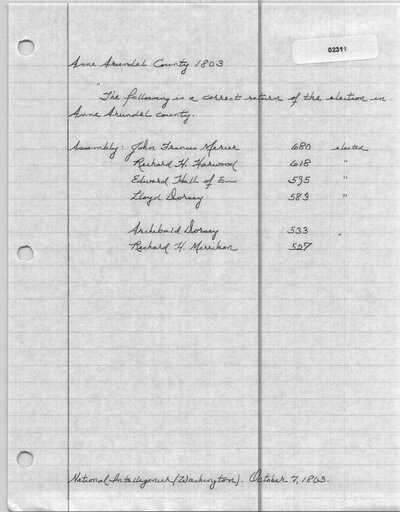 02311
Anne Arundel County 1803
"The following is a correct return of the election in
Anne Arundel county.
Assembly: John Francis Mercer 680 elected
Richard H. Harwood 618 "
Edward Hall of E— 595 "
Lloyd Dorsey 583 "
Archibald Dorsey 533 "
Richard H. Merriken 527
National Intelligencer (Washington). October 7, 1803.